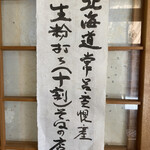 北海道常呂豊幌産
生粉打ち(十割)そばの店